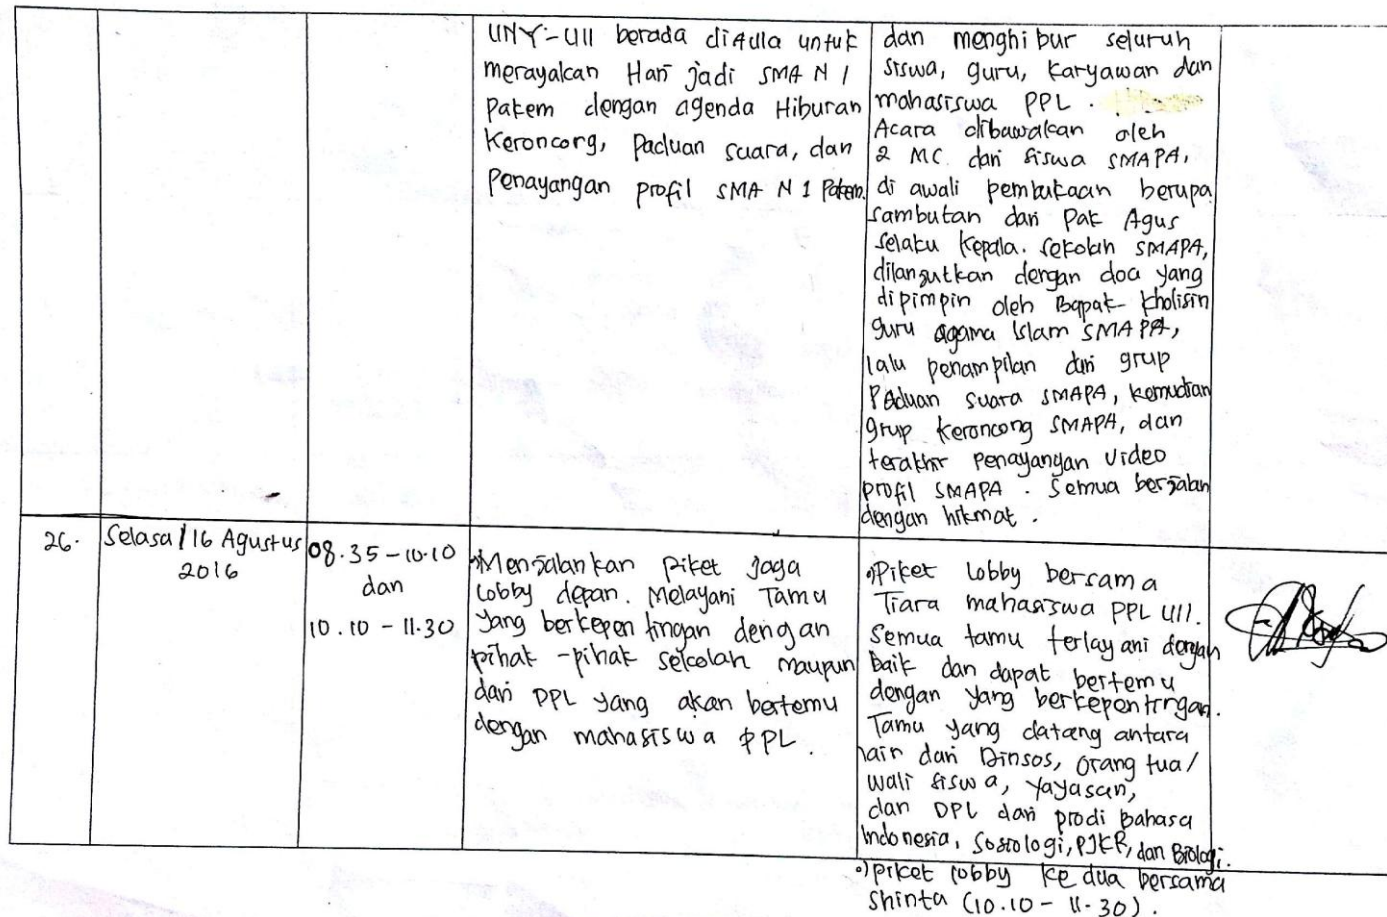 UNY-UII berada diAula untuk
merayakan Hari jadi SMA N 1
Pakem dengan agenda Hiburan
Keroncong, Paduan suara, dan
Penayangan profil SMA N 1 Pakem.
dan menghibur seluruh
siswa, guru, Karyawan dan
mahasiswa PPL.
Acara dibawakan oleh
2 MC dari siswa SMAPA,
di awali pembukaan berupa
sambutan dari Pak Agus
selaku Kepala. sekolah SMAPA,
dilanjutkan dengan doa yang
dipimpin oleh Bapak Kholisin
guru agama Islam SMAPA,
lalu penampilan dari grup
Paduan suara SMAPA, kemudian
grup Keroncong SMAPA, dan
terakhir penayangan video
profil SMAPA. Semua berjalan
dengan hikmat.
26.
Selasa / 16 Agustus
2016
08.35-10.10
dan
10.10 - 11.30
•) Menjalankan piket jaga
lobby depan. Melayani Tamu
yang berkepentingan dengan
pihak-pihak sekolah maupun
dari DPL yang akan bertemu
dengan mahasiswa PPL.
•) Piket Lobby bersama
Tiara mahasiswa PPL UII.
Semua tamu terlayani dengan
baik dan dapat bertemu
dengan yang berkepentingan.
Tamu yang datang antara
lain dari Dinsos, orang tua/
wali siswa, Yayasan,
dan DPL dari prodi Bahasa
Indonesia, Sosiologi, PJKR, dan Biologi.
•) piket lobby ke dua bersama
Shinta (10.10 - 11.30).